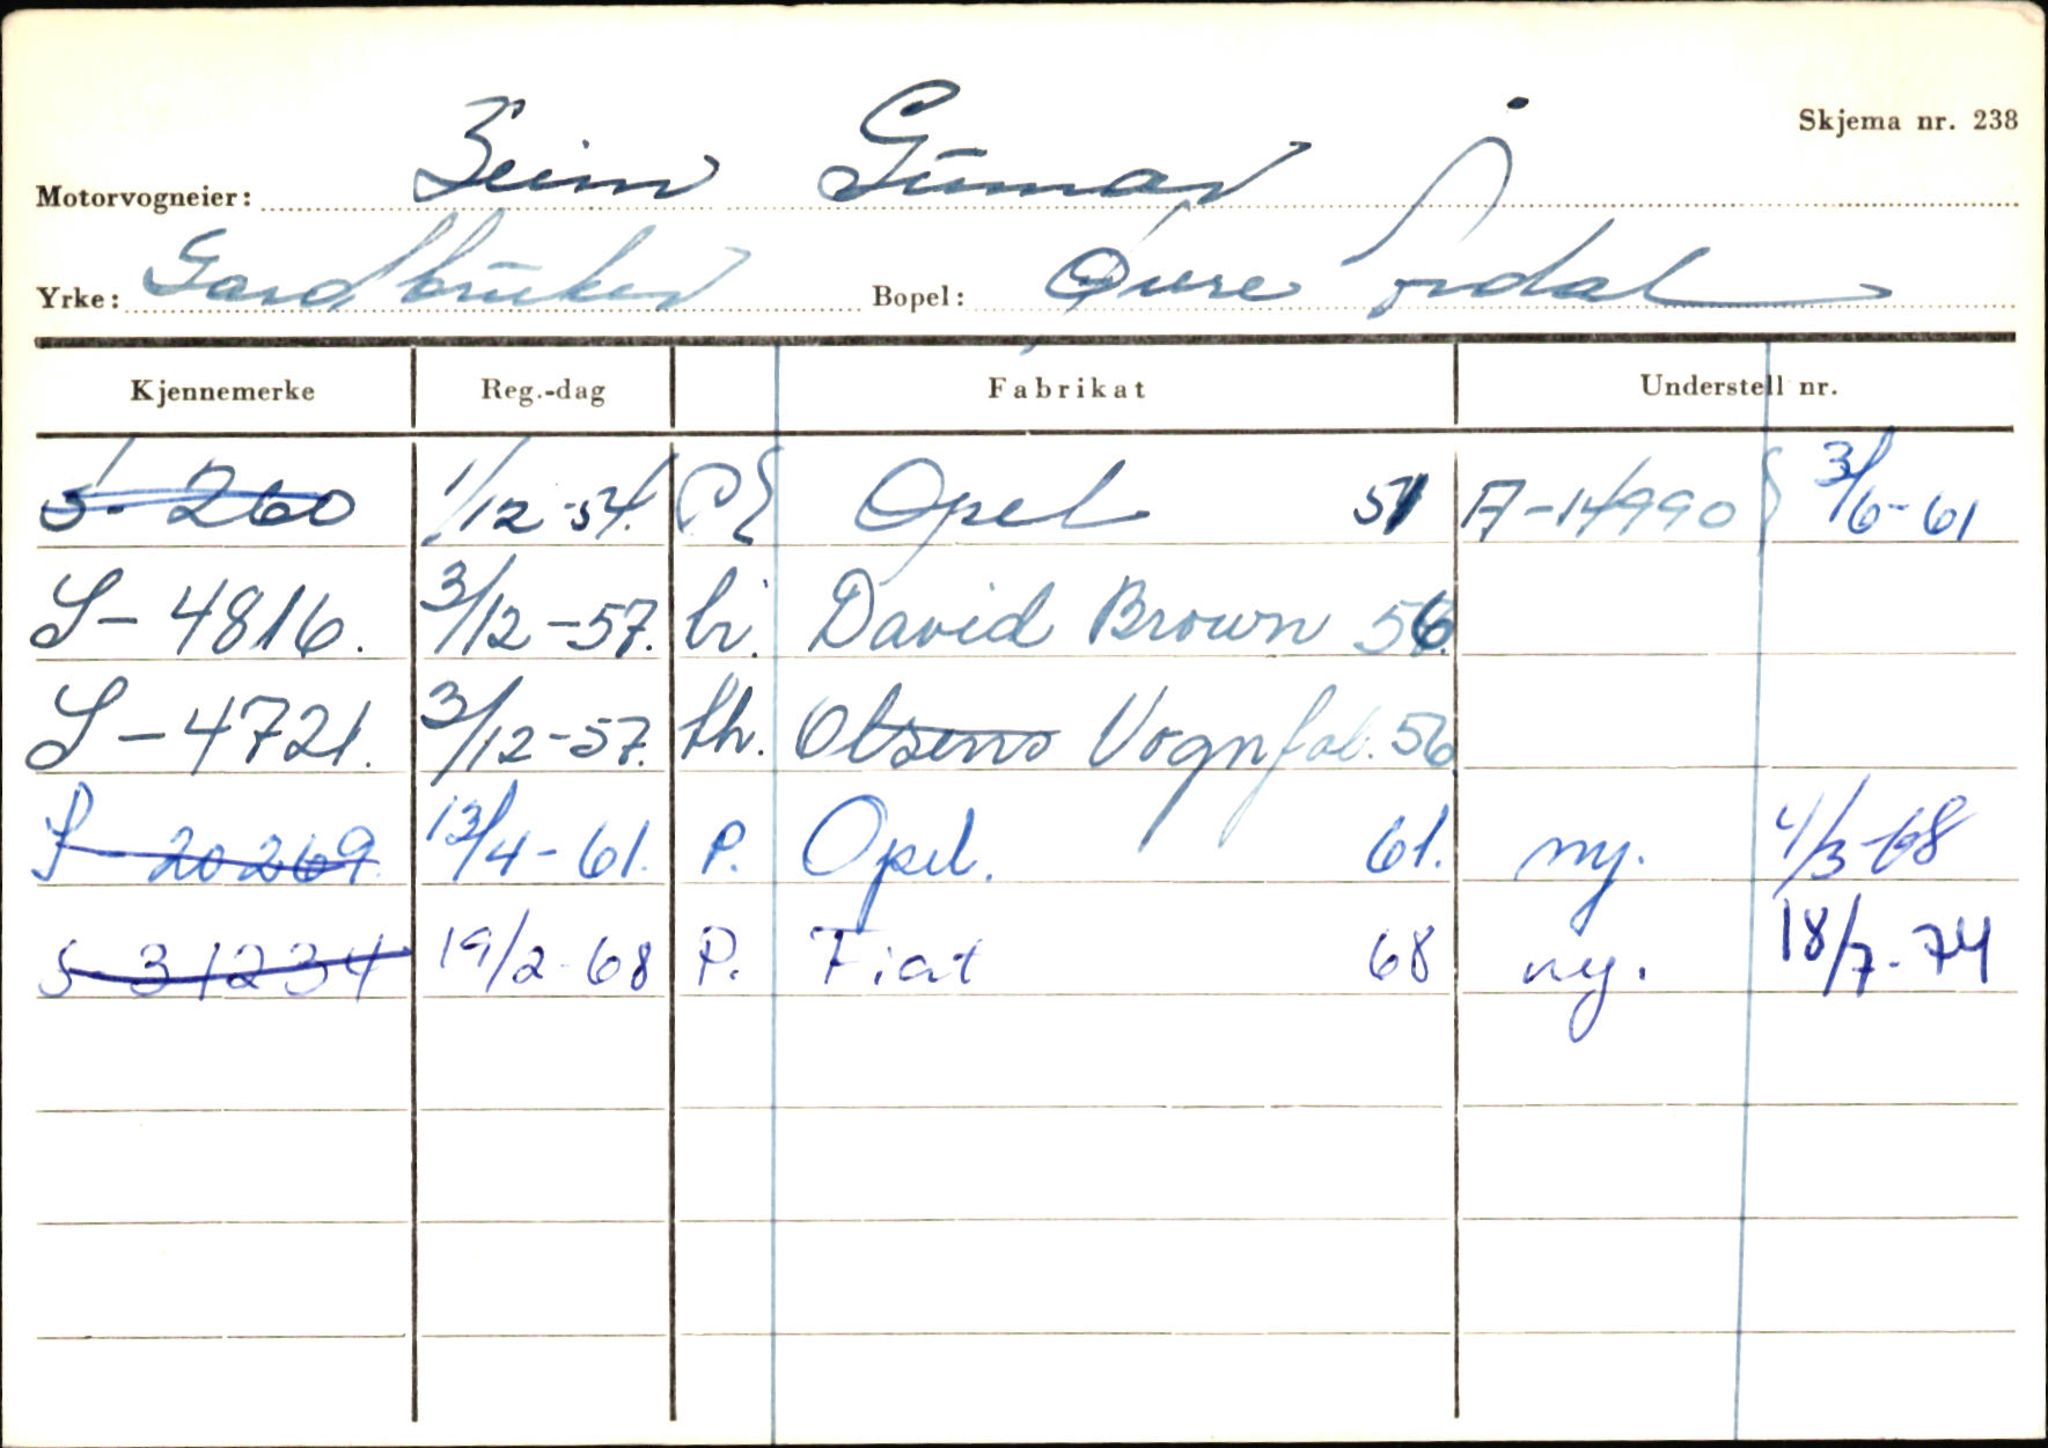 Skjema nr. 238
Motorvogneier: Gunnar
Yrke: Gardbruker Bopel: Øvre Årdal
Kjennemerke Reg.-dag Fabrikat Understell nr.
S-260 1/12-54. P Opel 51 A-14990 3/6-61
S-4816. 3/12-57. David Brown 56.
S-4721. 3/12-57. th. Olsens Vognfab. 56
S-20269 13/4-61. P. Opel. 61. ny. 4/3-68
S-31234 19/2-68 P. Fiat 68 ny. 18/7-74